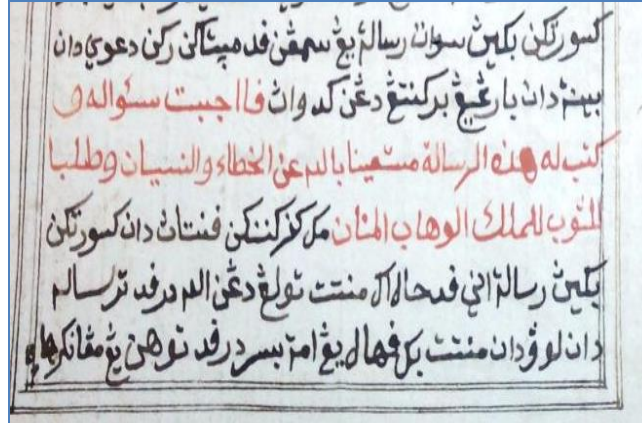 كسورتكن بكين سوات رسالة يڠ سمڤن ڤد مڽتاكن ركن دعوي دان
بينة دان بارڠيڠ بركنتڠ دڠن كدوان فااجبت سئواله و
كتب له هذه الرسالة مستعينا بالله عن الخطاء والنسيان وطلبا
للثوب للملك الوهاب المنان مك كركنتكن ڤنتاث دان كسورتكن
بكين رسالة اني ڤدحال اكو منتت تولڠ دڠن الله درڤد ترساله
دان لوڤ دان منتت بكو ڤهال يڠ امة بسر درڤد توهن يڠ